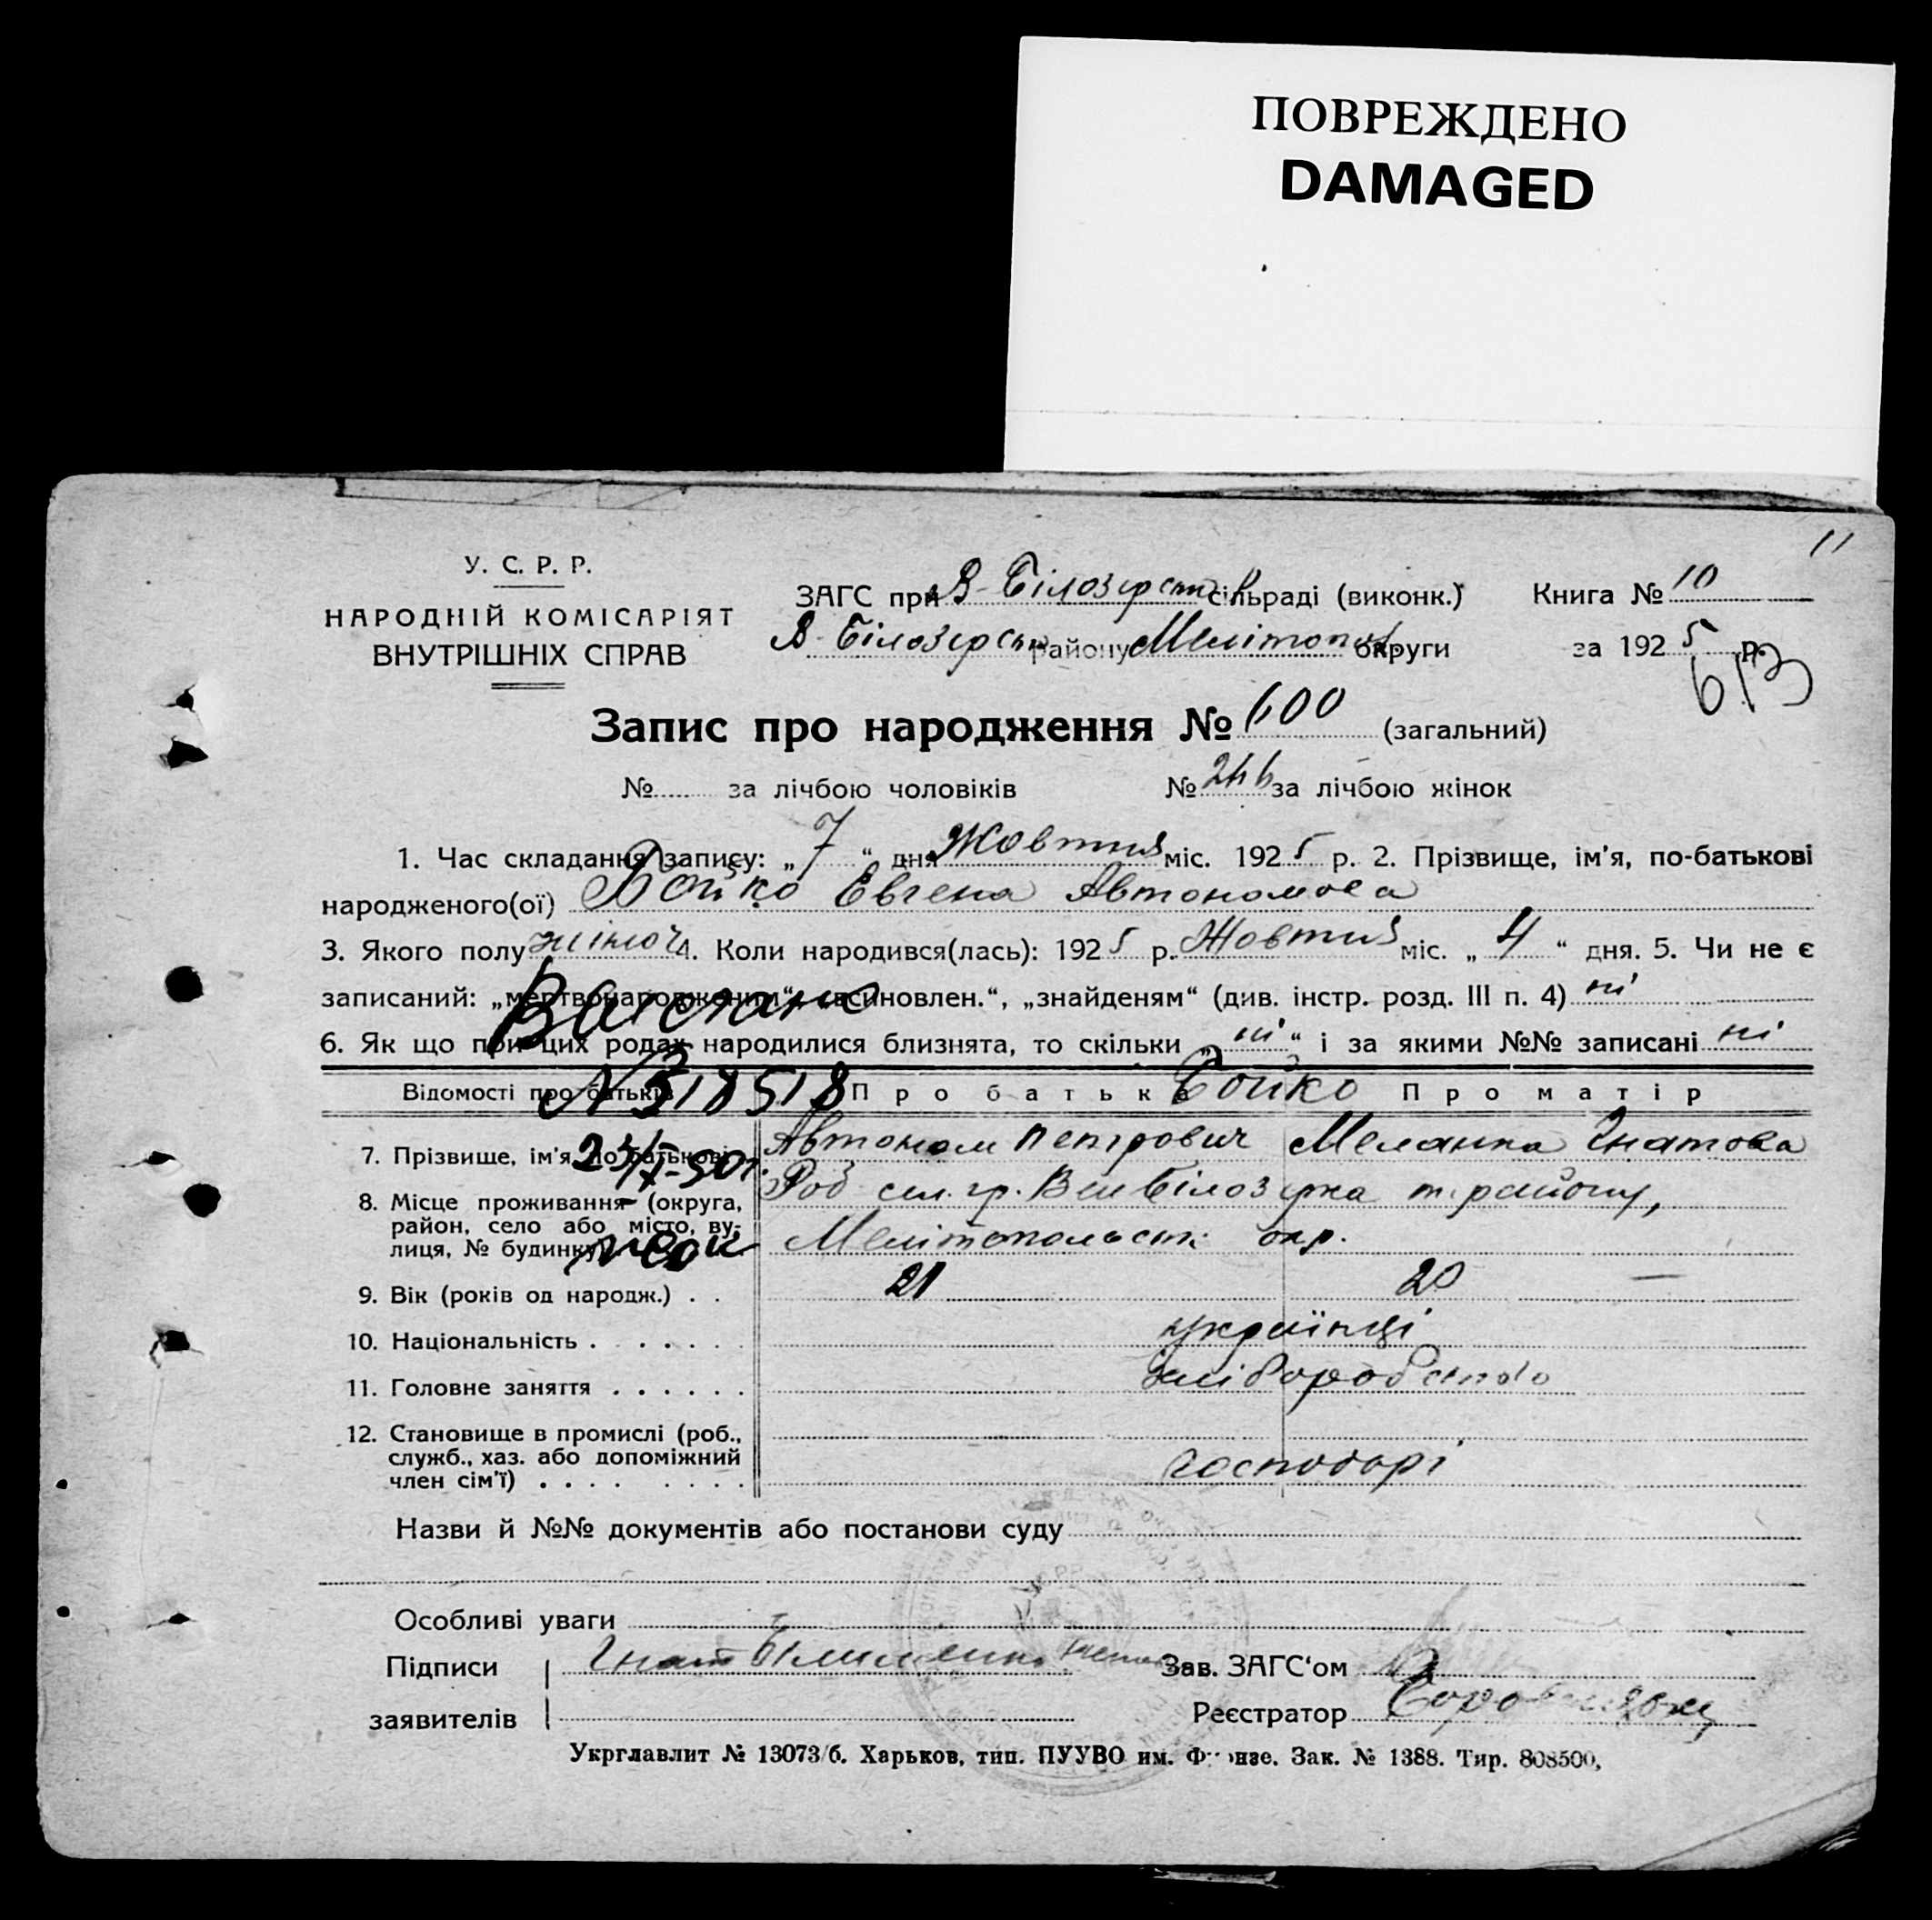 ПОВРЕЖДЕНО
DAMAGED
11
У. С. Р. Р.
НАРОДНІЙ КОМІСАРІЯТ
ВНУТРІШНІХ СПРАВ
ЗАГС при В-Білозерськ сільраді (виконк.) Книга № 10
В-Білозерськ району Мелітопол. округи за 1925 р.
613
Запис про народження № 600 (загальний)
№ за лічбою чоловіків № за лічбою жінок
1. Час складання запису: „7“ дня Жовтня міс. 1925 р. 2. Прізвище, ім'я, по-батькові
народженого(ої) Бойко Евгена Автономова
3. Якого полу жіноч 4. Коли народився(лась): 1925 р. Жовтня міс. „4“ дня. 5. Чи не є
записаний: „мертвонародженим“, „всиновлен.“, „знайденям“ (див. інстр. розд. III п. 4) ні
6. Як що при цих родах народилися близнята, то скільки „ні“ і за якими №№ записані ні
Відомості про батьків Про батька Бойко Про матір
№ 518518
7. Прізвище, ім'я, по-батькові Автоном Петрович Меланка Гнатова
8. Місце проживання (округа, район, село або місто, вулиця, № будинку) Род сел. гр. Вел Білозерка т. району,
Мелітопольськ окр.
9. Вік (років од народж.) . . 21 20 —
10. Національність . . . . . . українці
11. Головне заняття . . . . . . хліборобство
12. Становище в промислі (роб.,
служб., хаз. або допоміжний
член сім'ї) . . . . . . . . господарі
Назви й №№ документів або постанови суду
Особливі уваги
Підписи Гнат Зав. ЗАГС‘ом
заявителів Реєстратор
Укрглавлит № 13073/б. Харьков, тип. ПУУВО им. Фрунзе. Зак. № 1388. Тир. 808500,